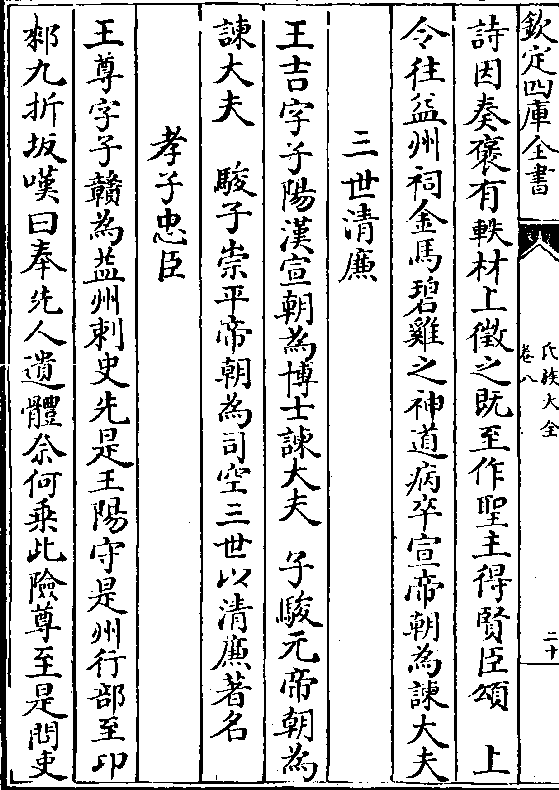 欽定四庫全書
氏族大全
卷八
二十
詩因奏襃有軼材上徵之既至作聖主得賢臣頌　上
令往益州祠金馬碧雞之神道病卒宣帝朝為諫大夫
三世清廉
王吉字子陽漢宣朝為博士諫大夫　子駿元帝朝為
諫大夫　駿子崇平帝朝為司空三世以清廉著名
孝子忠臣
王尊字子贛為益州刺史先是王陽守是州行部至卭
郲九折坂嘆曰奉先人遺體奈何乗此險尊至是問吏